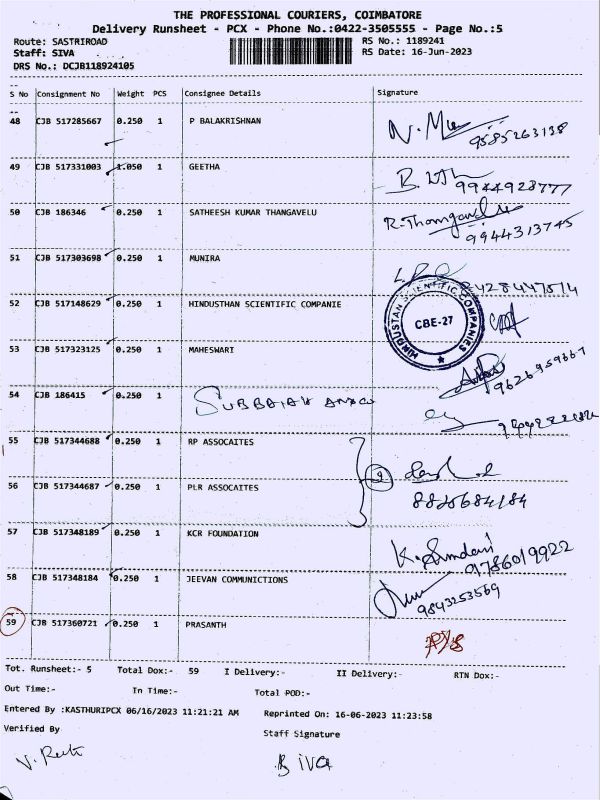 THE PROFESSIONAL COURIERS, COIMBATORE
Delivery Runsheet - PCX - Phone No.:0422-3505555 - Page No.:5
Route: SASTRIROAD RS No.: 1189241
Staff: SIVA RS Date: 16-Jun-2023
DRS No.: DCJB118924105
S No Consignment No Weight PCS Consignee Details Signature
48 CJB 517285667 0.250 1 P BALAKRISHNAN
9585263138
49 CJB 517331003 1.050 1 GEETHA
9944928777
50 CJB 186346 0.250 1 SATHEESH KUMAR THANGAVELU R. Thamgavel
9944313745
51 CJB 517303698 0.250 1 MUNIRA
8428447814
52 CJB 517148629 0.250 1 HINDUSTHAN SCIENTIFIC COMPANIE
HINDUSTAN SCIENTIFIC COMPANIES
CBE-27
53 CJB 517323125 0.250 1 MAHESWARI
9626959667
54 CJB 186415 0.250 1 SUBBAIAH
55 CJB 517344688 0.250 1 RP ASSOCAITES
2
56 CJB 517344687 0.250 1 PLR ASSOCAITES
8825684184
57 CJB 517348189 0.250 1 KCR FOUNDATION
9786019922
58 CJB 517348184 0.250 1 JEEVAN COMMUNICTIONS
9843253569
59 CJB 517360721 0.250 1 PRASANTH
Tot. Runsheet:- 5 Total Dox:- 59 I Delivery:- II Delivery:- RTN Dox:-
Out Time:- In Time:- Total POD:-
Entered By :KASTHURIPCX 06/16/2023 11:21:21 AM Reprinted On: 16-06-2023 11:23:58
Verified By Staff Signature